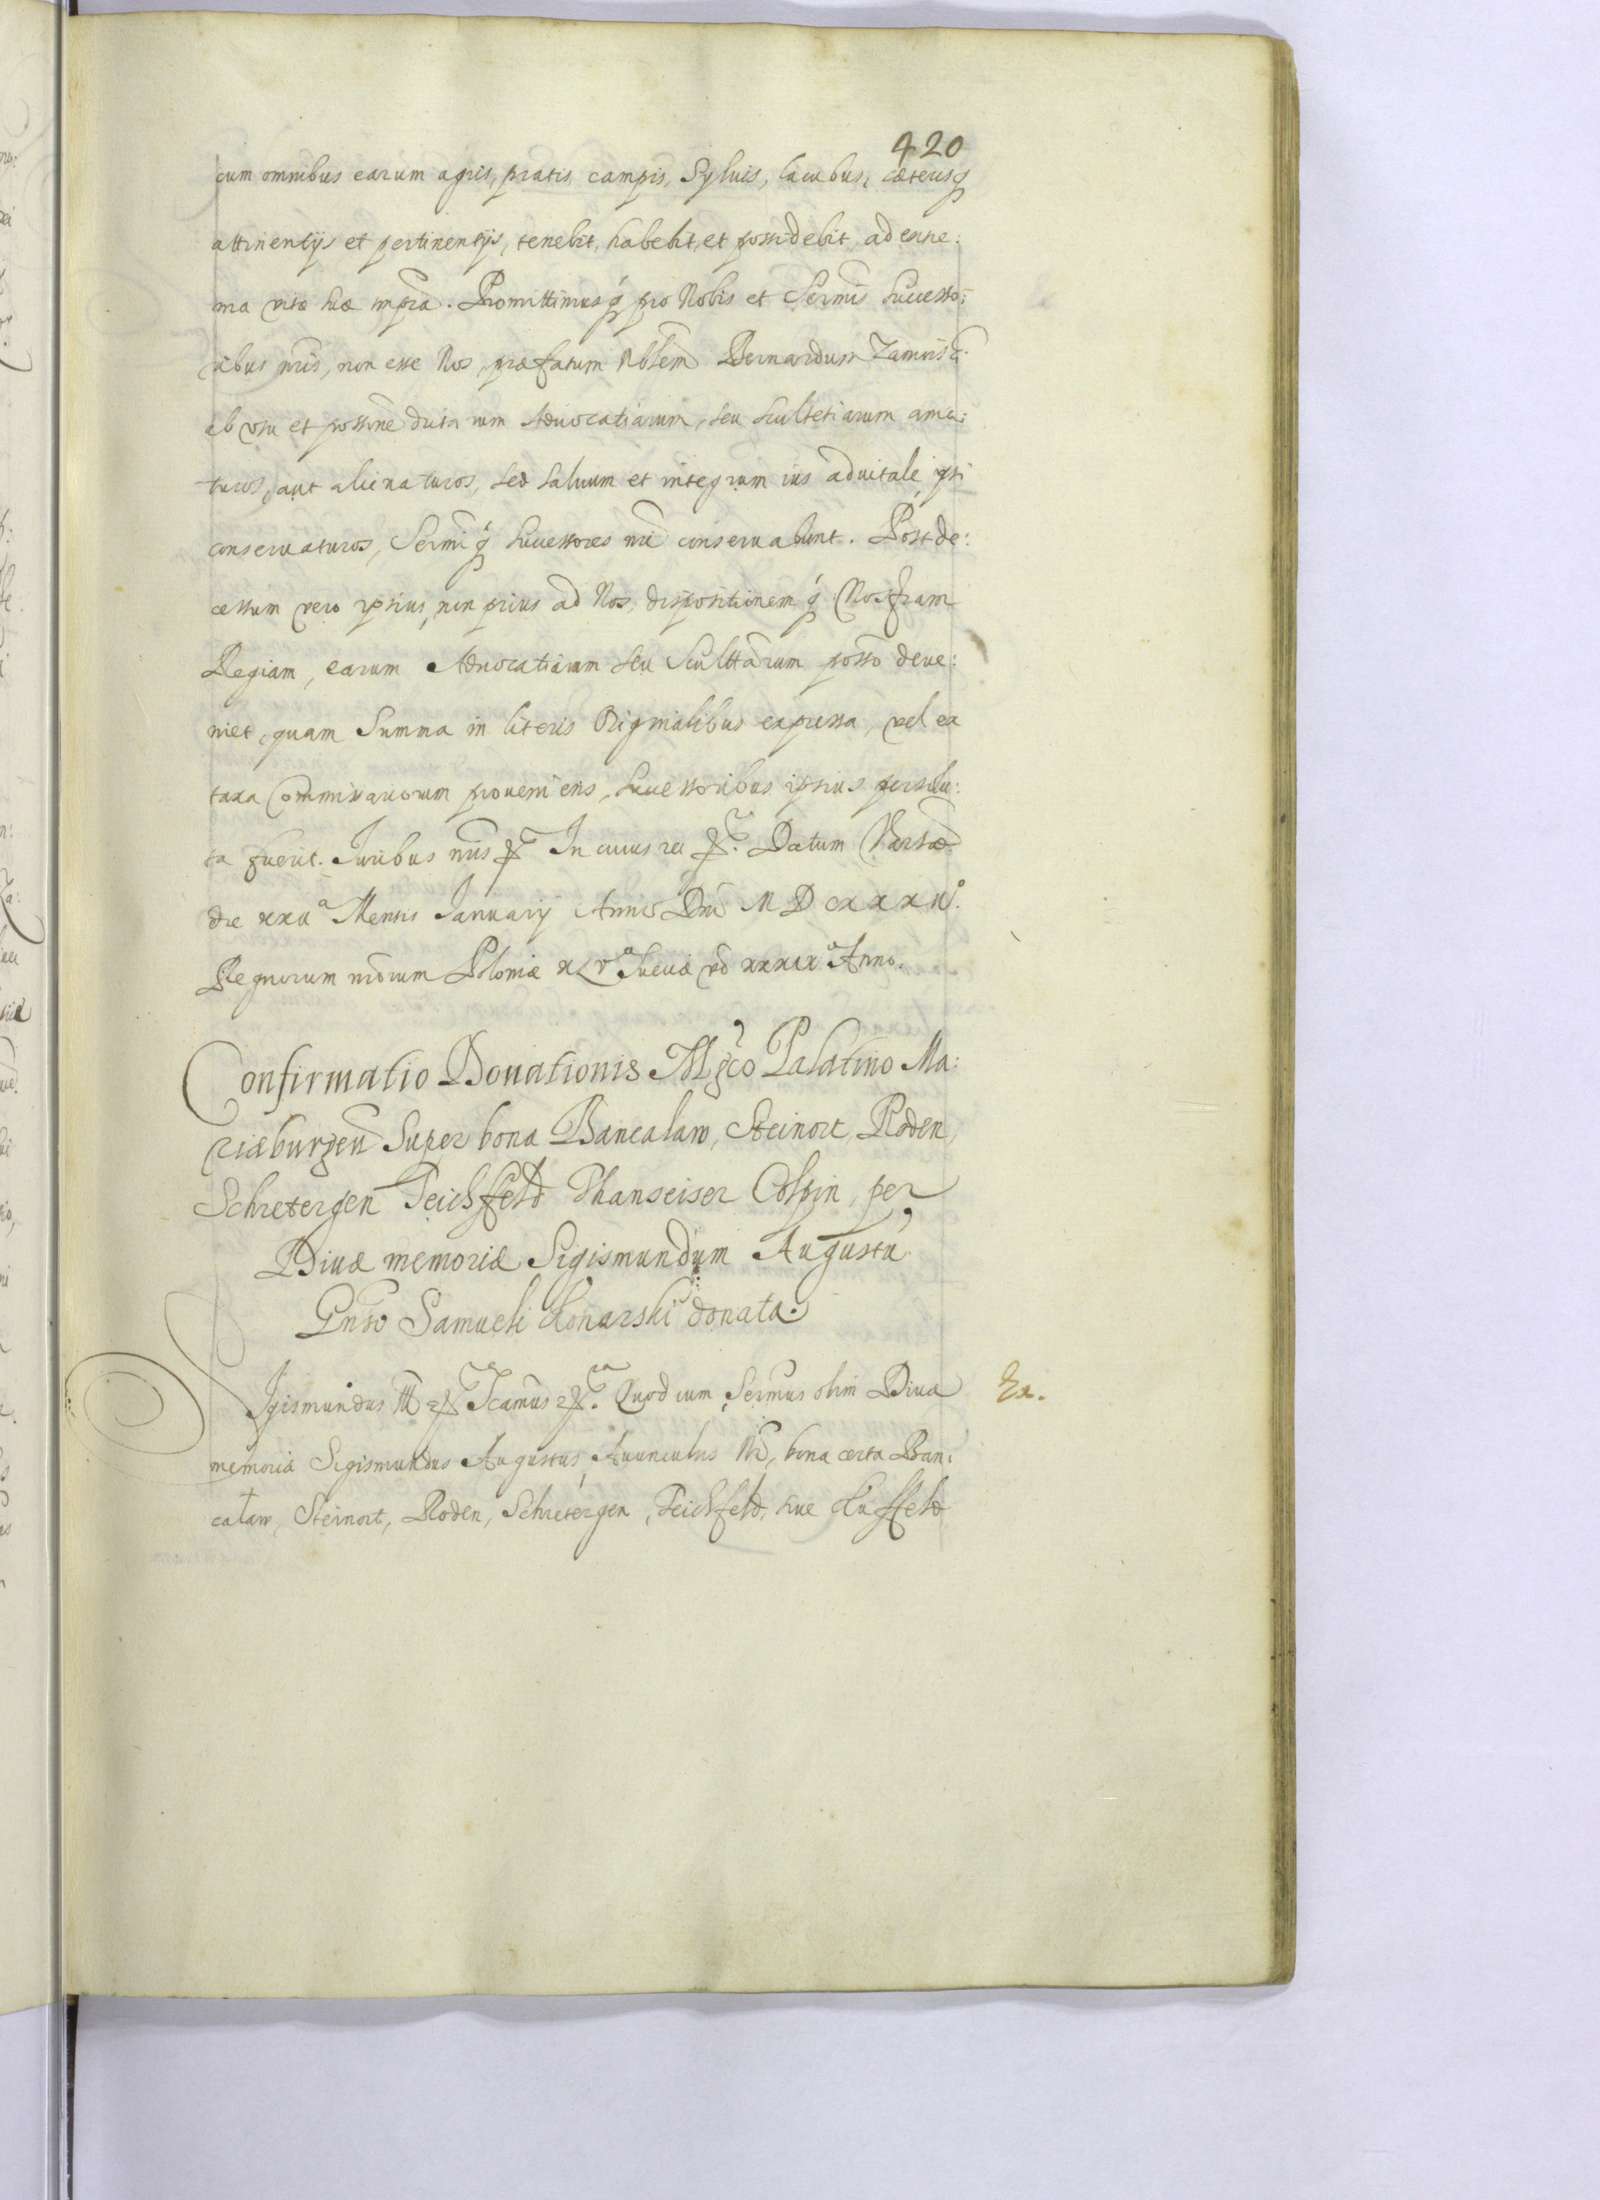 420
cum omnibus earum agris, pratis, campis, Sylvis, lacubus, cæterisq
attinentijs et pertinentijs, tenebit, habebit, et possidebit, ad extre:
ma vitæ suæ tempora. Promittimusq pro Nobis et Sermis Successo:
ribus nris, non esse Nos, præfatum Nobilem Bernardum
ab usu et possessione dictarum Advocatiarum, seu Scultetiarum amo:
turos, aut alienaturos, sed salvum et integrum ius advitale ipsi
conservaturos, Sermiq Successores nri conservabunt. Post de:
cessum vero ipsius, non prius ad Nos, dispositionemq Nostram
Regiam, earum Advocatiarum seu Scultiarum possessio deve:
niet, quam Summa in literis Originalibus expressa, vel ex
taxa Commissariorum proveniens, Successoribus ipsius persolu:
ta fuerit. Iuribus nris In cuius rei Datum Varsaviæ
die Mensis Ianuarij Anno Dni M D C XXX II.
Regnorum nrorum Poloniæ XLV Sueciæ vero XXXIX Anno.
Confirmatio Donationis Mgco Palatino Ma:
riæburgen Super bona Bancalaw, Steinort, Roden,
Schretergen Teichffeld Thanseiser Colpin, per
Divæ memoriæ Sigismundum Augustu
Gnso Samueli Konarski donata.
Sigismundus III Scamus Quod cum Sermus olim Divæ
Ex.
memoriæ Sigismundus Augustus, Avunculus Nr, bona certa Ban:
calaw, Steinort, Roden, Schretergen, Teichfeld, sive Kuffeld